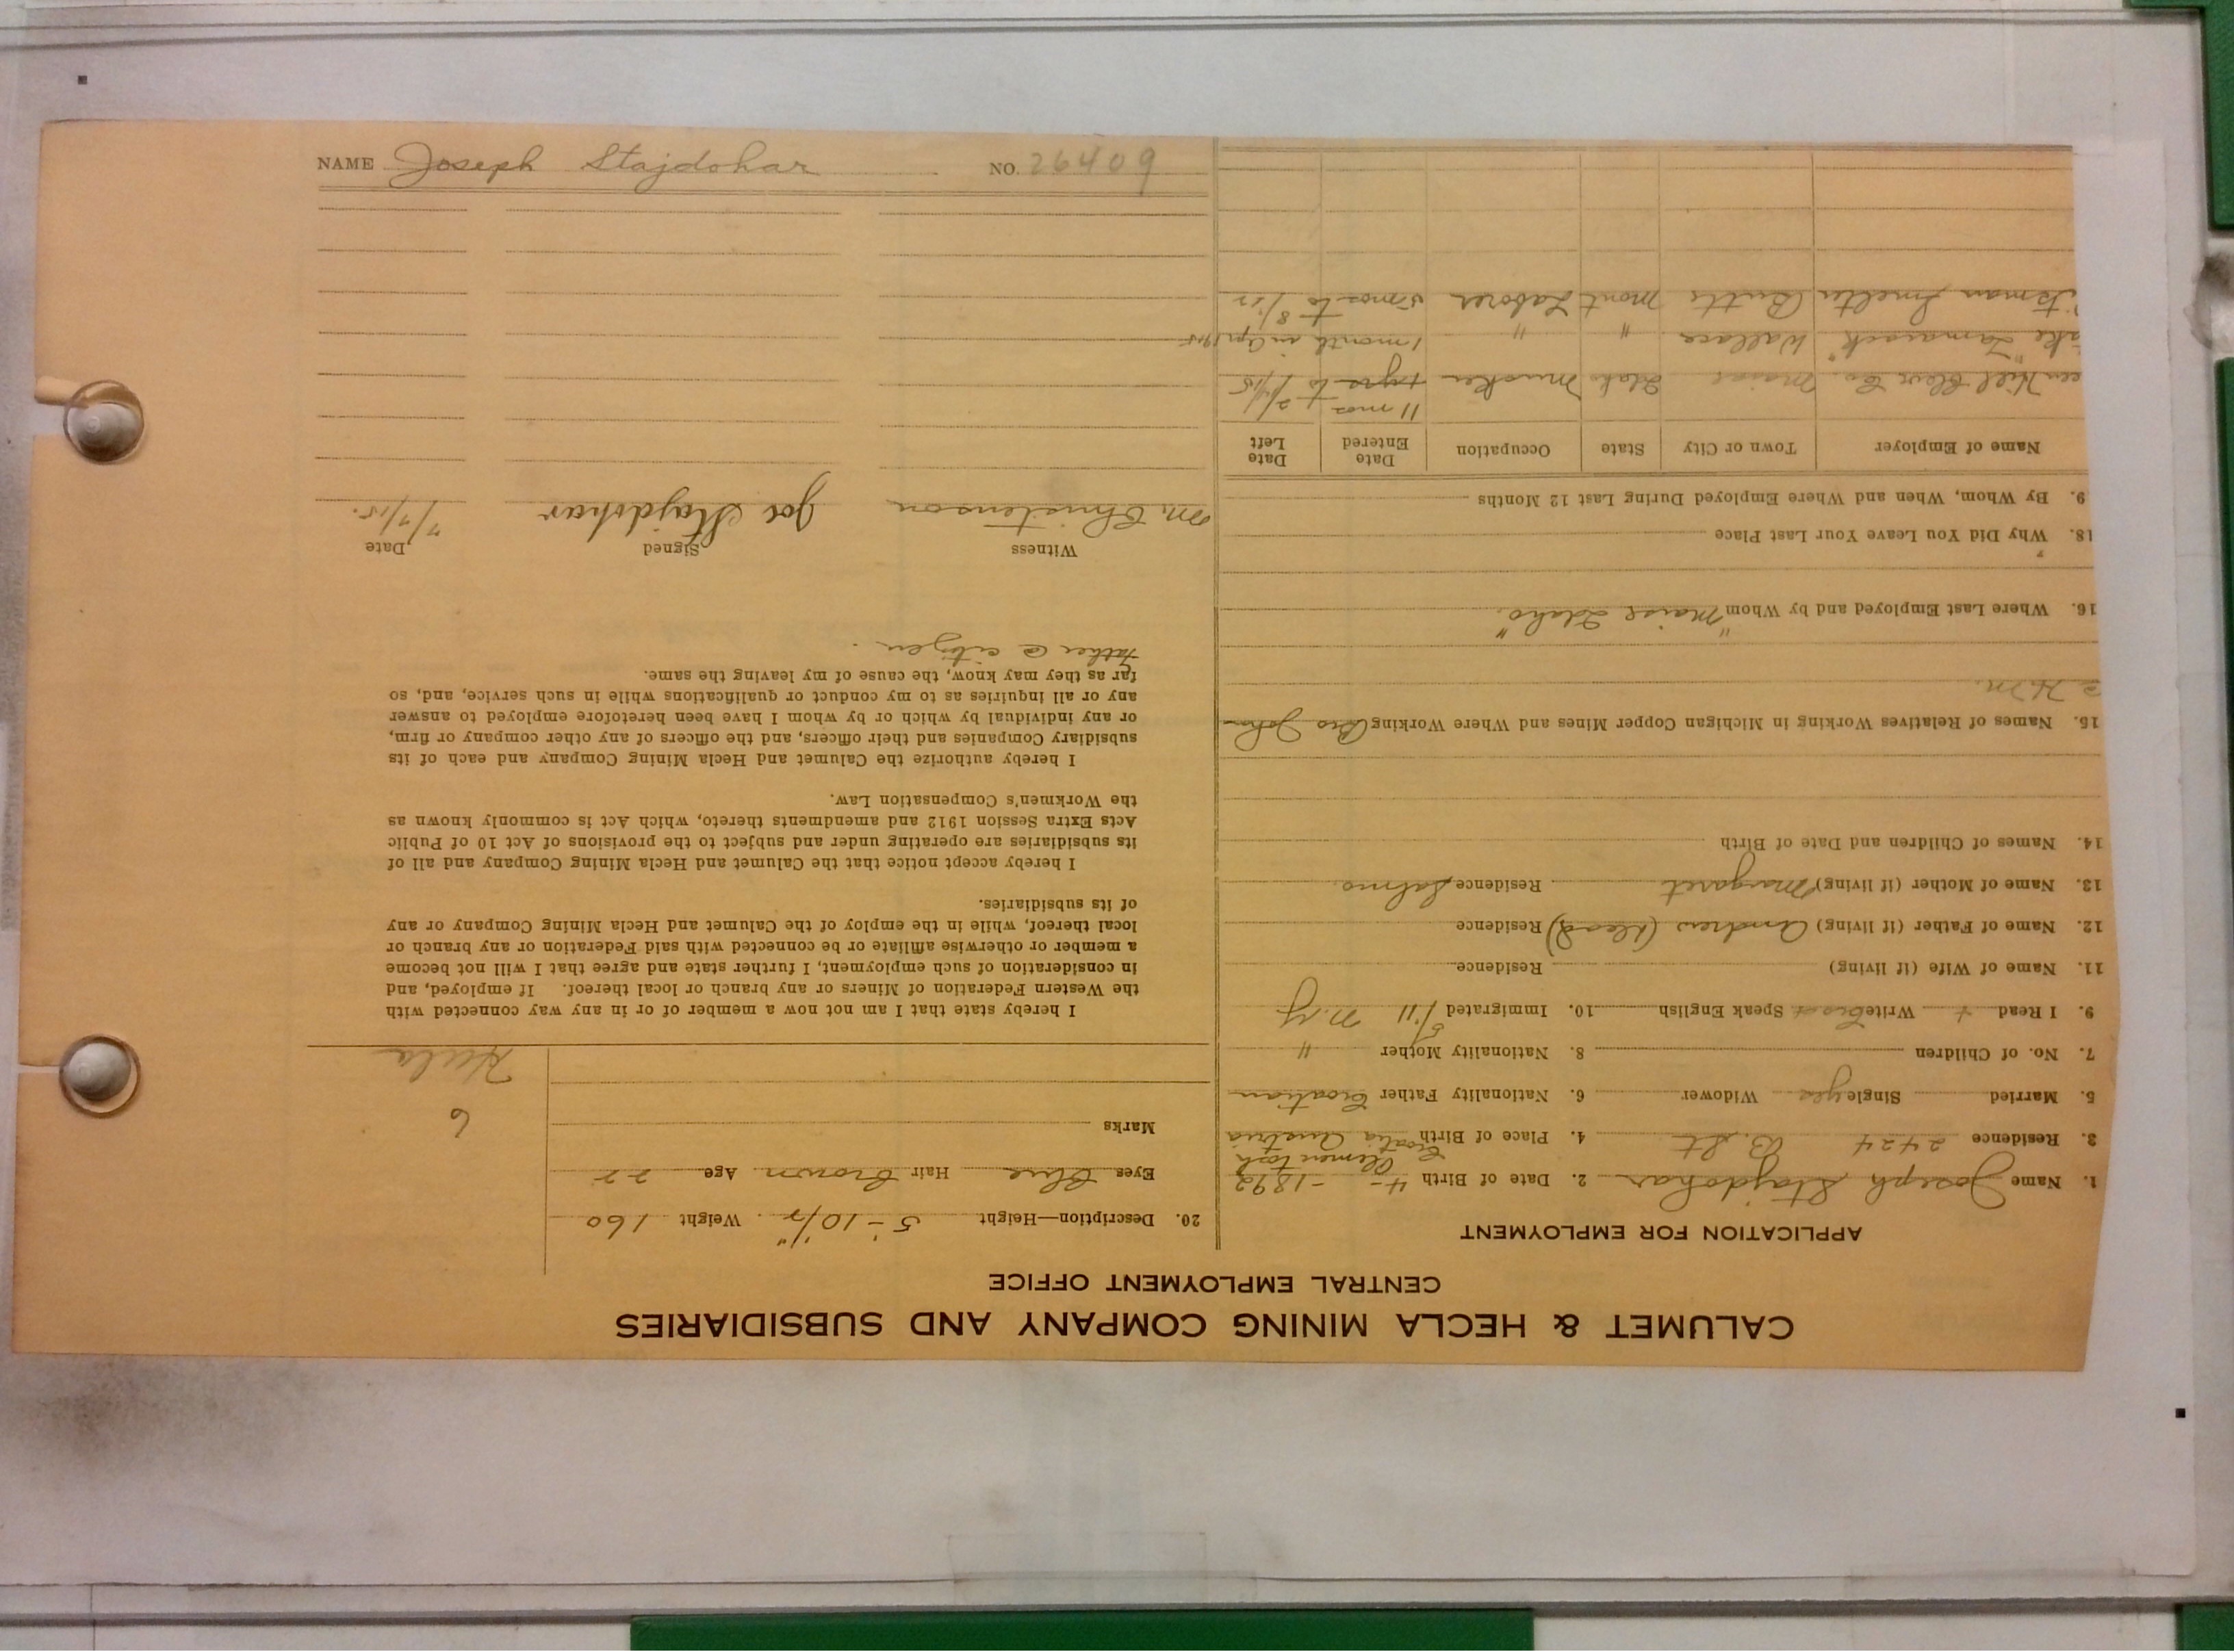 CALUMET & HECLA MINING COMPANY AND SUBSIDIARIES
CENTRAL EMPLOYMENT OFFICE
APPLICATION FOR EMPLOYMENT
1. Name Joseph Stajdohar 2. Date of Birth 4- -1892
3. Residence 2424 B. St 4. Place of Birth Croatia Austria
5. Married Single yes Widower 6. Nationality Father Croatian
7. No. of Children 8. Nationality Mother "
9. I Read + Write Croat + Speak English 10. Immigrated 5/'11 N.Y
11. Name of Wife (if living) Residence
12. Name of Father (if living) Andrew (dead) Residence
13. Name of Mother (if living) Margaret Residence
14. Names of Children and Date of Birth
15. Names of Relatives Working in Michigan Copper Mines and Where Working Bro John
16. Where Last Employed and by Whom "Maise Idaho"
18. Why Did You Leave Your Last Place
9. By Whom, When and Where Employed During Last 12 Months
Name of Employer Town or City State Occupation Date Entered Date Left
11 mos
Hill Idaho mucker to 2/4/15
Tamarack" Wallace " " 1 month in Apr 1915
Smelter Butte Mont Laborer 5 mos to 8/'12
20. Description—Height 5'-10 1/2" Weight 160
Eyes Blue Hair Brown Age 22
Marks
6
Hecla
I hereby state that I am not now a member of or in any way connected with
the Western Federation of Miners or any branch or local thereof. If employed, and
in consideration of such employment, I further state and agree that I will not become
a member or otherwise affiliate or be connected with said Federation or any branch or
local thereof, while in the employ of the Calumet and Hecla Mining Company or any
of its subsidiaries.
I hereby accept notice that the Calumet and Hecla Mining Company and all of
its subsidiaries are operating under and subject to the provisions of Act 10 of Public
Acts Extra Session 1912 and amendments thereto, which Act is commonly known as
the Workmen's Compensation Law.
I hereby authorize the Calumet and Hecla Mining Company and each of its
subsidiary Companies and their officers, and the officers of any other company or firm,
or any individual by which or by whom I have been heretofore employed to answer
any or all inquiries as to my conduct or qualifications while in such service, and, so
far as they may know, the cause of my leaving the same.
Father a citizen.
Witness Signed Date
M. Christenson Joe Stajdohar 7/7/15.
NAME Joseph Stajdohar NO. 26409